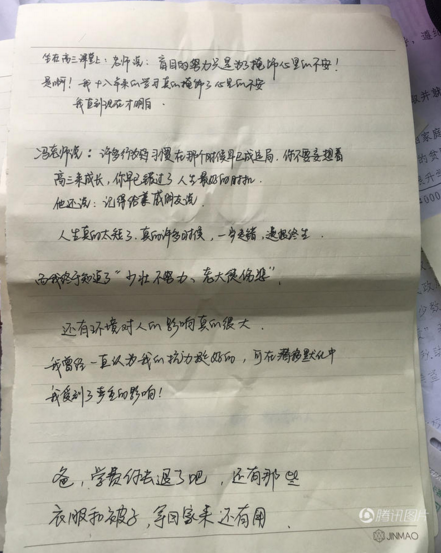 坐在高三课堂上，老师说：盲目的努力只是为了掩饰心里的不安！
是啊！我十八年来的学习真的掩饰了心里的不安
我直到现在才明白
冯老师说：许多行为与习惯在那个时候早已成定局，你不要妄想着
高三来成长，你早已错过了人生最好的时机
他还说：记得给 成朋友说
人生真的太短了，真的许多时候，一步走错，遗憾终生
而我终于知道了“少壮不努力、老大徒伤悲”，
还有环境对人的影响真的很大．
我曾经一直认为我的抗力挺好的，可在潜移默化中
我受到了 的影响！
爸，学费你去退了吧，还有那些
衣服和被子，拿回家来还有用．
腾讯图片
JINMAO